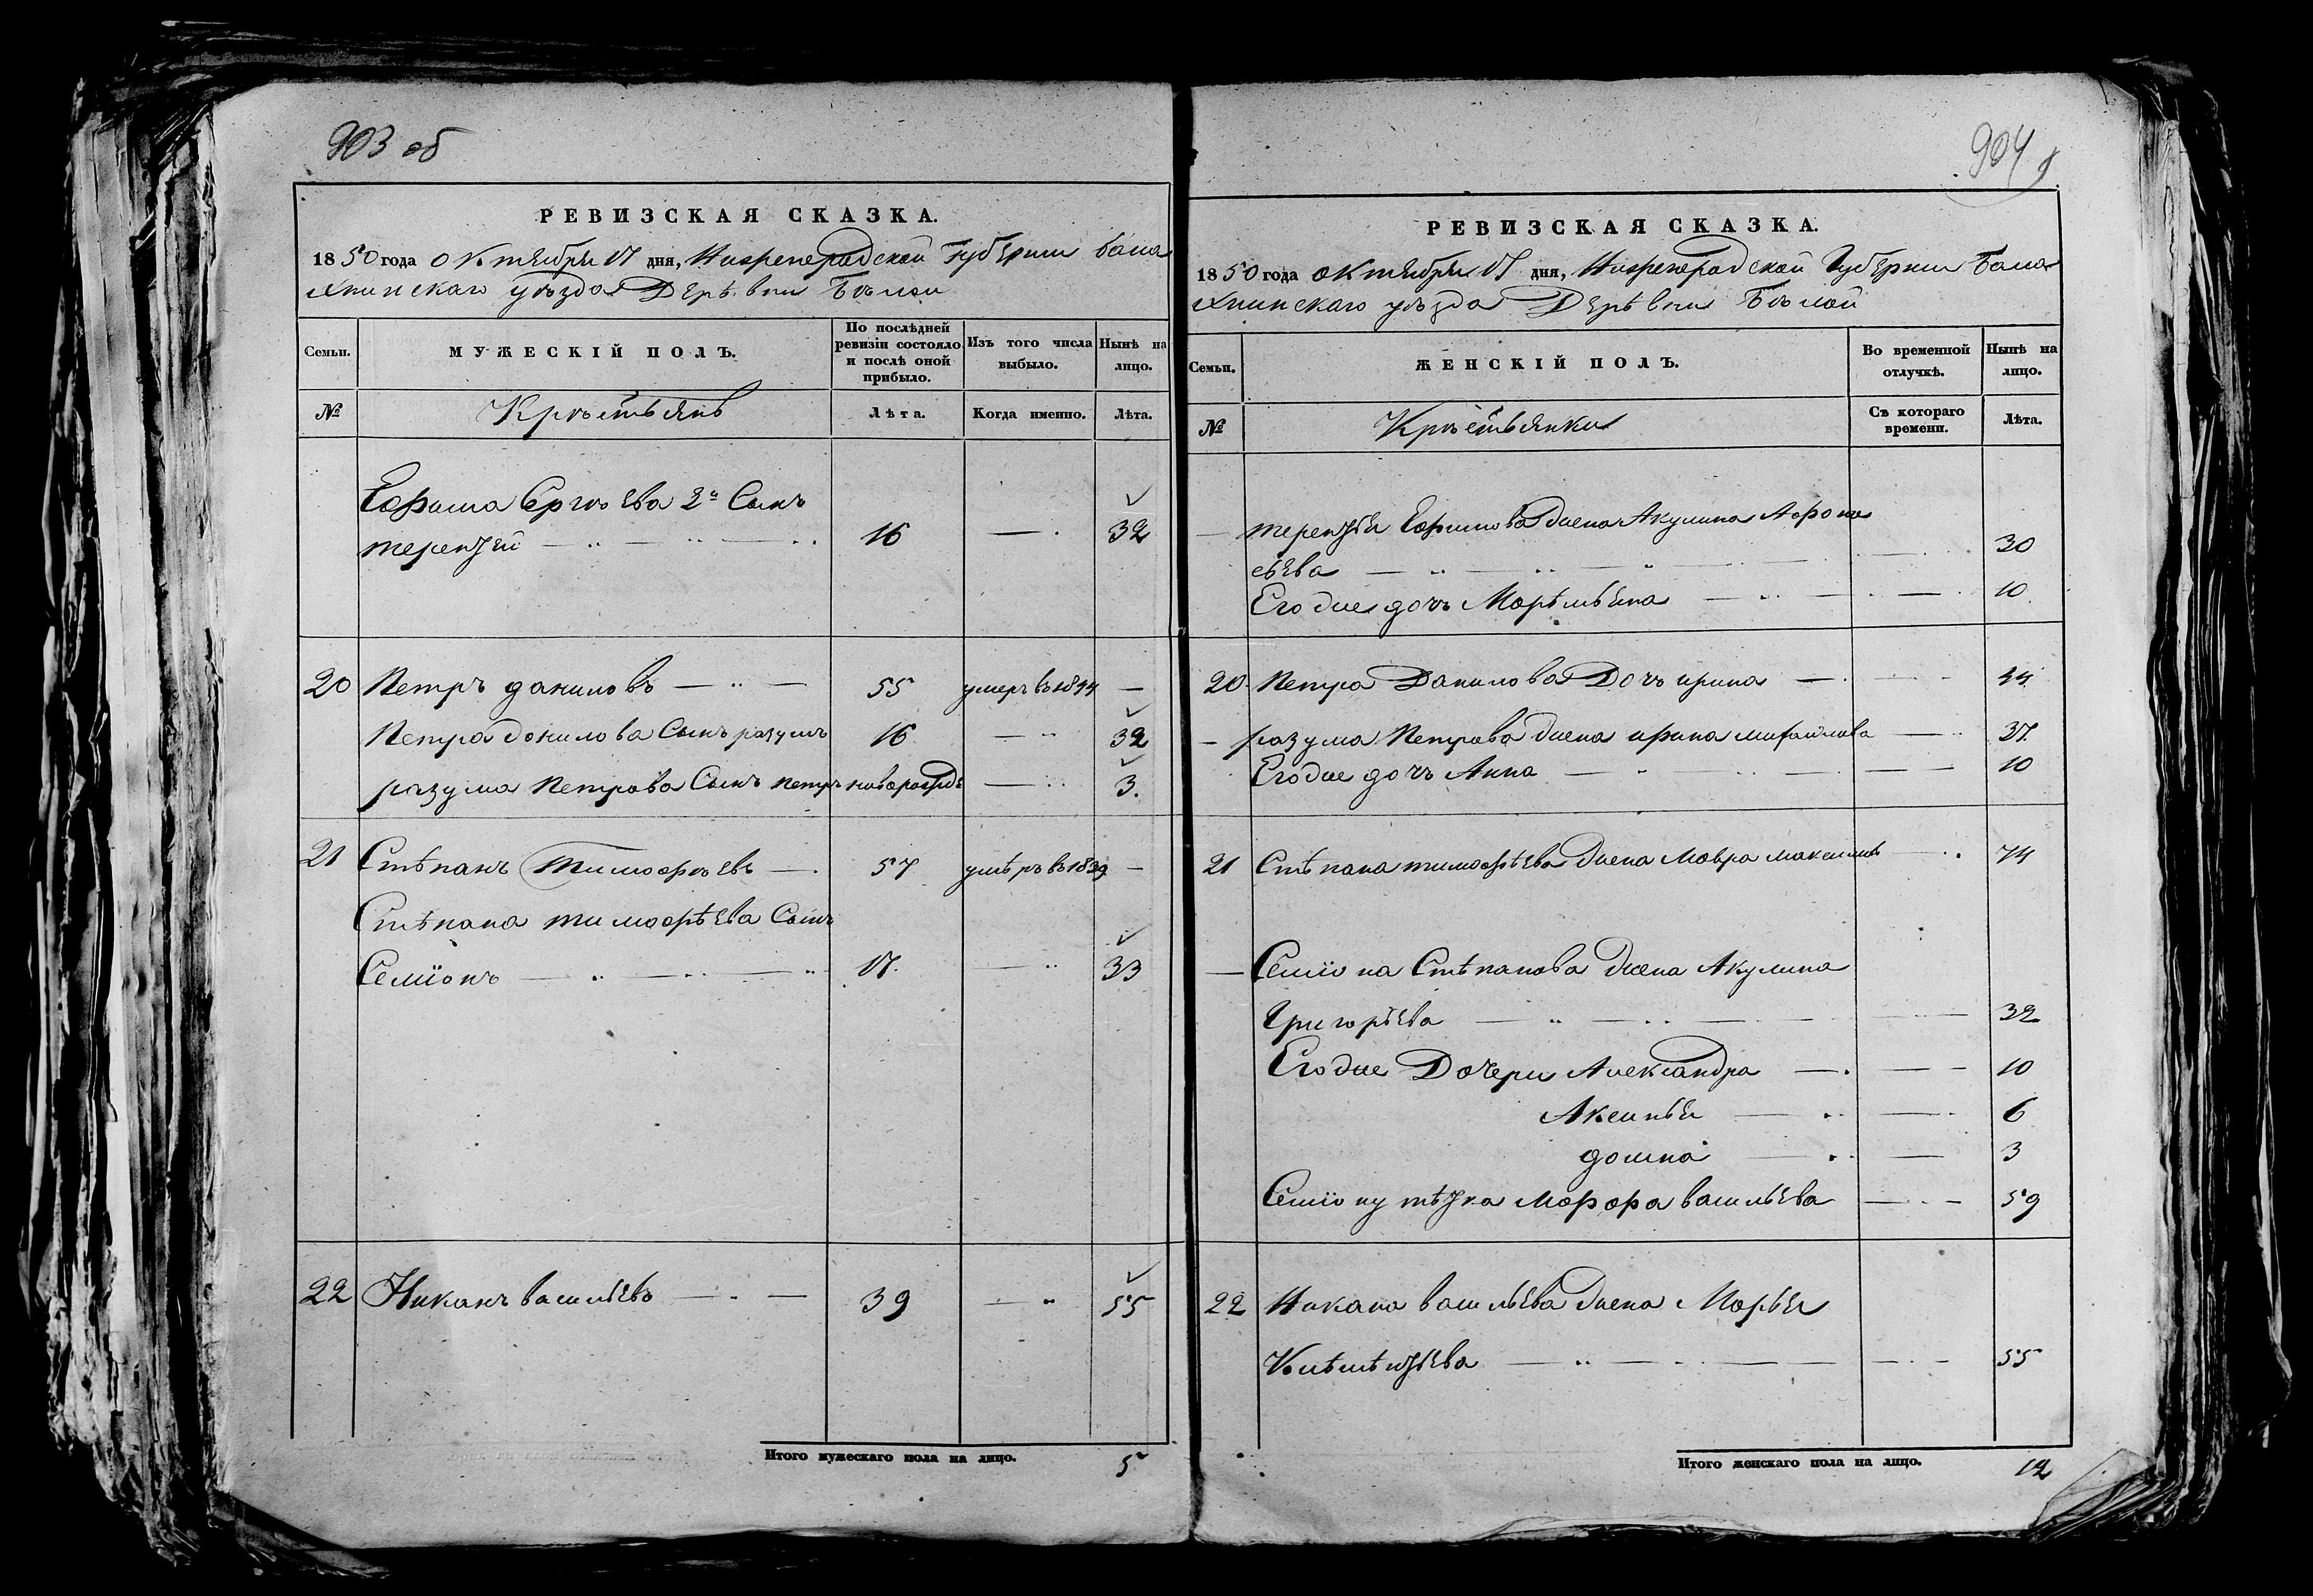 903 об
РЕВИЗСКАЯ СКАЗКА.
1850 года октября 17 дня, Нижегородской губернии Бала
хнинскаго уѣзда Дерѣвни Бѣлой
Семьи.
МУЖЕСКІЙ ПОЛЪ.
По послѣдней ревизіи состояло и послѣ оной прибыло.
Изъ того числа выбыло.
Нынѣ на лицо.
№
Крѣстьянъ
Лѣта.
Когда именно.
Лѣта.
Ефима Сергѣева 2й Сынъ
терентей — 16 — 32
20 Петръ даниловъ — 55 умеръ въ 1844 —
Петра данилова Сынъ разумъ 16 — 32
разума Петрова Сынъ петръ новорожде — 3.
21 Стѣпанъ тимофѣевъ — 57 умѣръ въ 1839 —
Стѣпана тимофѣева Сынъ
Семіонъ — 17. — 33
22 Никанъ васильевъ — 39 — 55
Итого мужескаго пола на лицо. 5
904
РЕВИЗСКАЯ СКАЗКА.
1850 года октября 17 дня, Нижегородской Губернии Бала
хнинскаго уѣзда Дерѣвни Бѣлой
Семьи.
ЖЕНСКІЙ ПОЛЪ.
Во временной отлучкѣ.
Нынѣ на лицо.
№
Крѣстьянки
Съ котораго времени.
Лѣта.
— терентья Ефимова жена Акулина Афона
сьева — 30
Егоже дочь Марѣмьяна — 10
20 Петра Данилова Дочь ирина — 44
— разума Петрова жена ирина михайлова — 37
Егоже дочь Анна — 10
21 Стѣпана тимофѣева жена Мавра максимов — 74
— Семіона Стѣпанова жена Акулина
Григорьева — 32
Егоже Дочери Александра — 10
Аксинья — 6
домна — 3
Семіону тѣтка Марфа васильева — 59
22 Никана васильева жена Марья
Клѣмѣнтьева — 55
Итого женскаго пола на лицо. 12